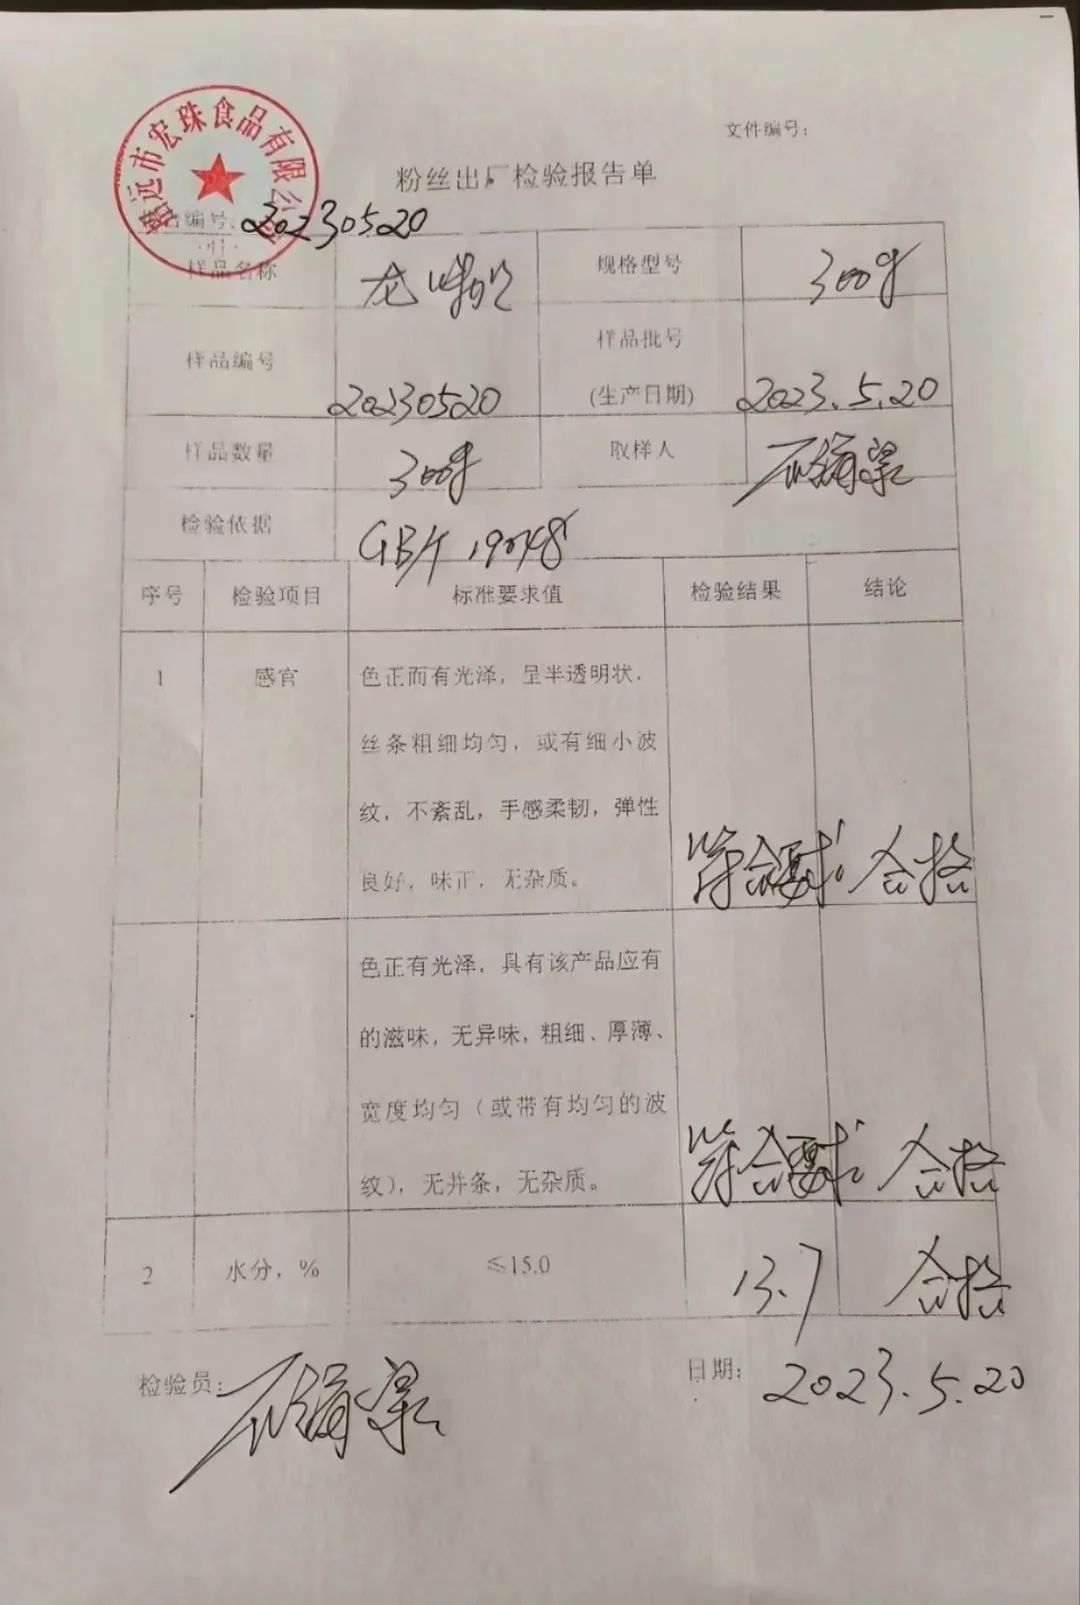 市宏珠食品有限公
文件编号：
粉丝出厂检验报告单
编号：20230520
样品名称 龙 规格型号 300g
样品编号 20230520 样品批号
(生产日期) 2023.5.20
样品数量 300g 取样人
检验依据 GB/T 19048
序号 检验项目 标准要求值 检验结果 结论
1 感官 色正而有光泽，呈半透明状，
丝条粗细均匀，或有细小波
纹，不紊乱，手感柔韧，弹性
良好，味正，无杂质。 符合要求 合格
色正有光泽，具有该产品应有
的滋味，无异味，粗细、厚薄、
宽度均匀（或带有均匀的波
纹），无并条，无杂质。 符合要求 合格
2 水分，% ≤15.0 13.7 合格
检验员： 日期：2023.5.20